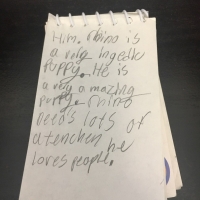 Him. Rhino is
a very ingetic
puppy. He is
a very amazing
puppy. Rhino
needs lots of
atenchen he
loves people.